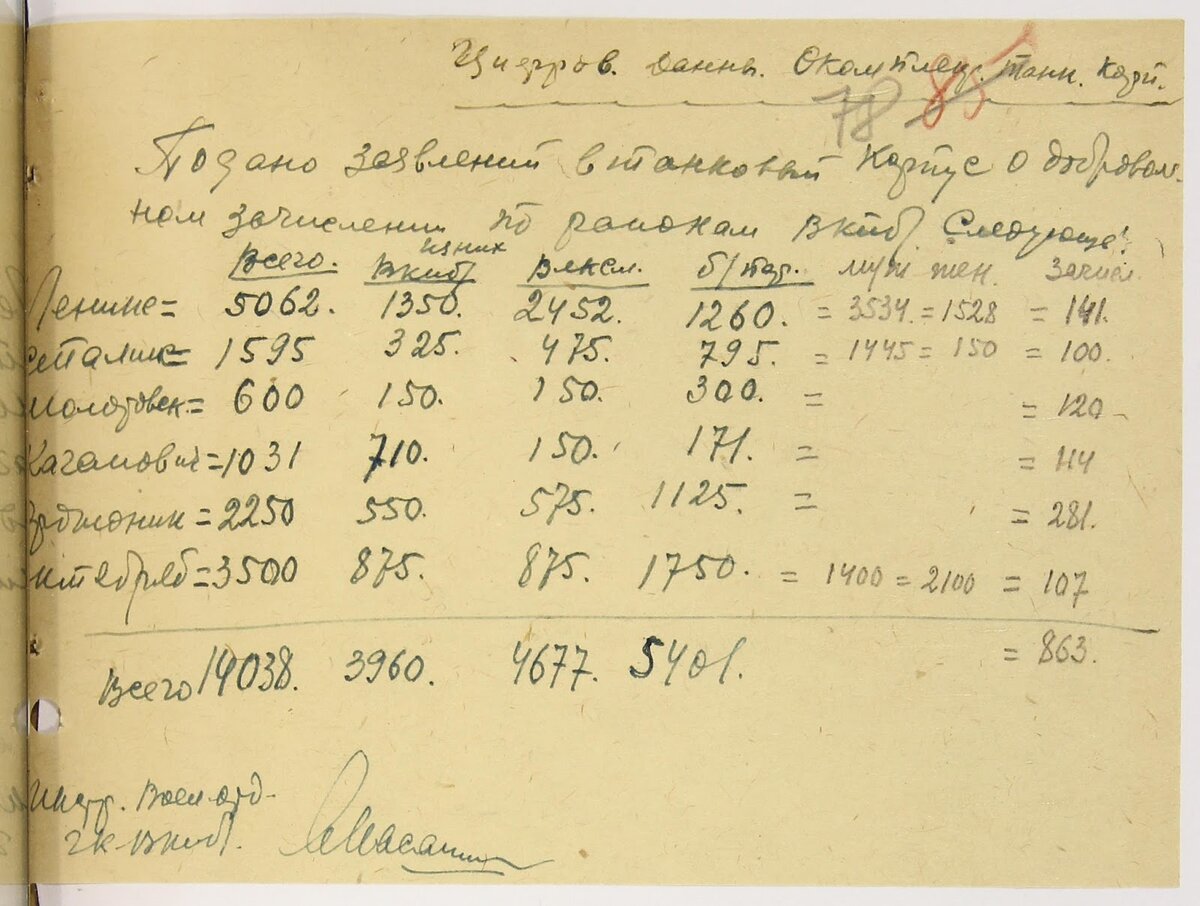 Цифров. данны. О комплец. танк. корп.
78 85
Подано заявлений в танковый корпус о доброволь-
ном зачислении по районам ВКПб. Следующе:
из них
Всего. ВКПб Влксм. б/пар. муж жен. Зачисл
Ленинс= 5062. 1350. 2452. 1260. = 3534. = 1528 = 141.
Сталинс= 1595 325. 475. 795. = 1445 = 150 = 100.
Молотовск.= 600 150. 150. 300. = = 120
Каганович=1031 710. 150. 171. = = 114
рджоник=2250 550. 575. 1125. = = 281.
ктябрьс=3500 875. 875. 1750. = 1400 = 2100 = 107
Всего 14038. 3960. 4677. 5401. = 863.
Инстр. Воен. отд-
ГК-ВКПб.